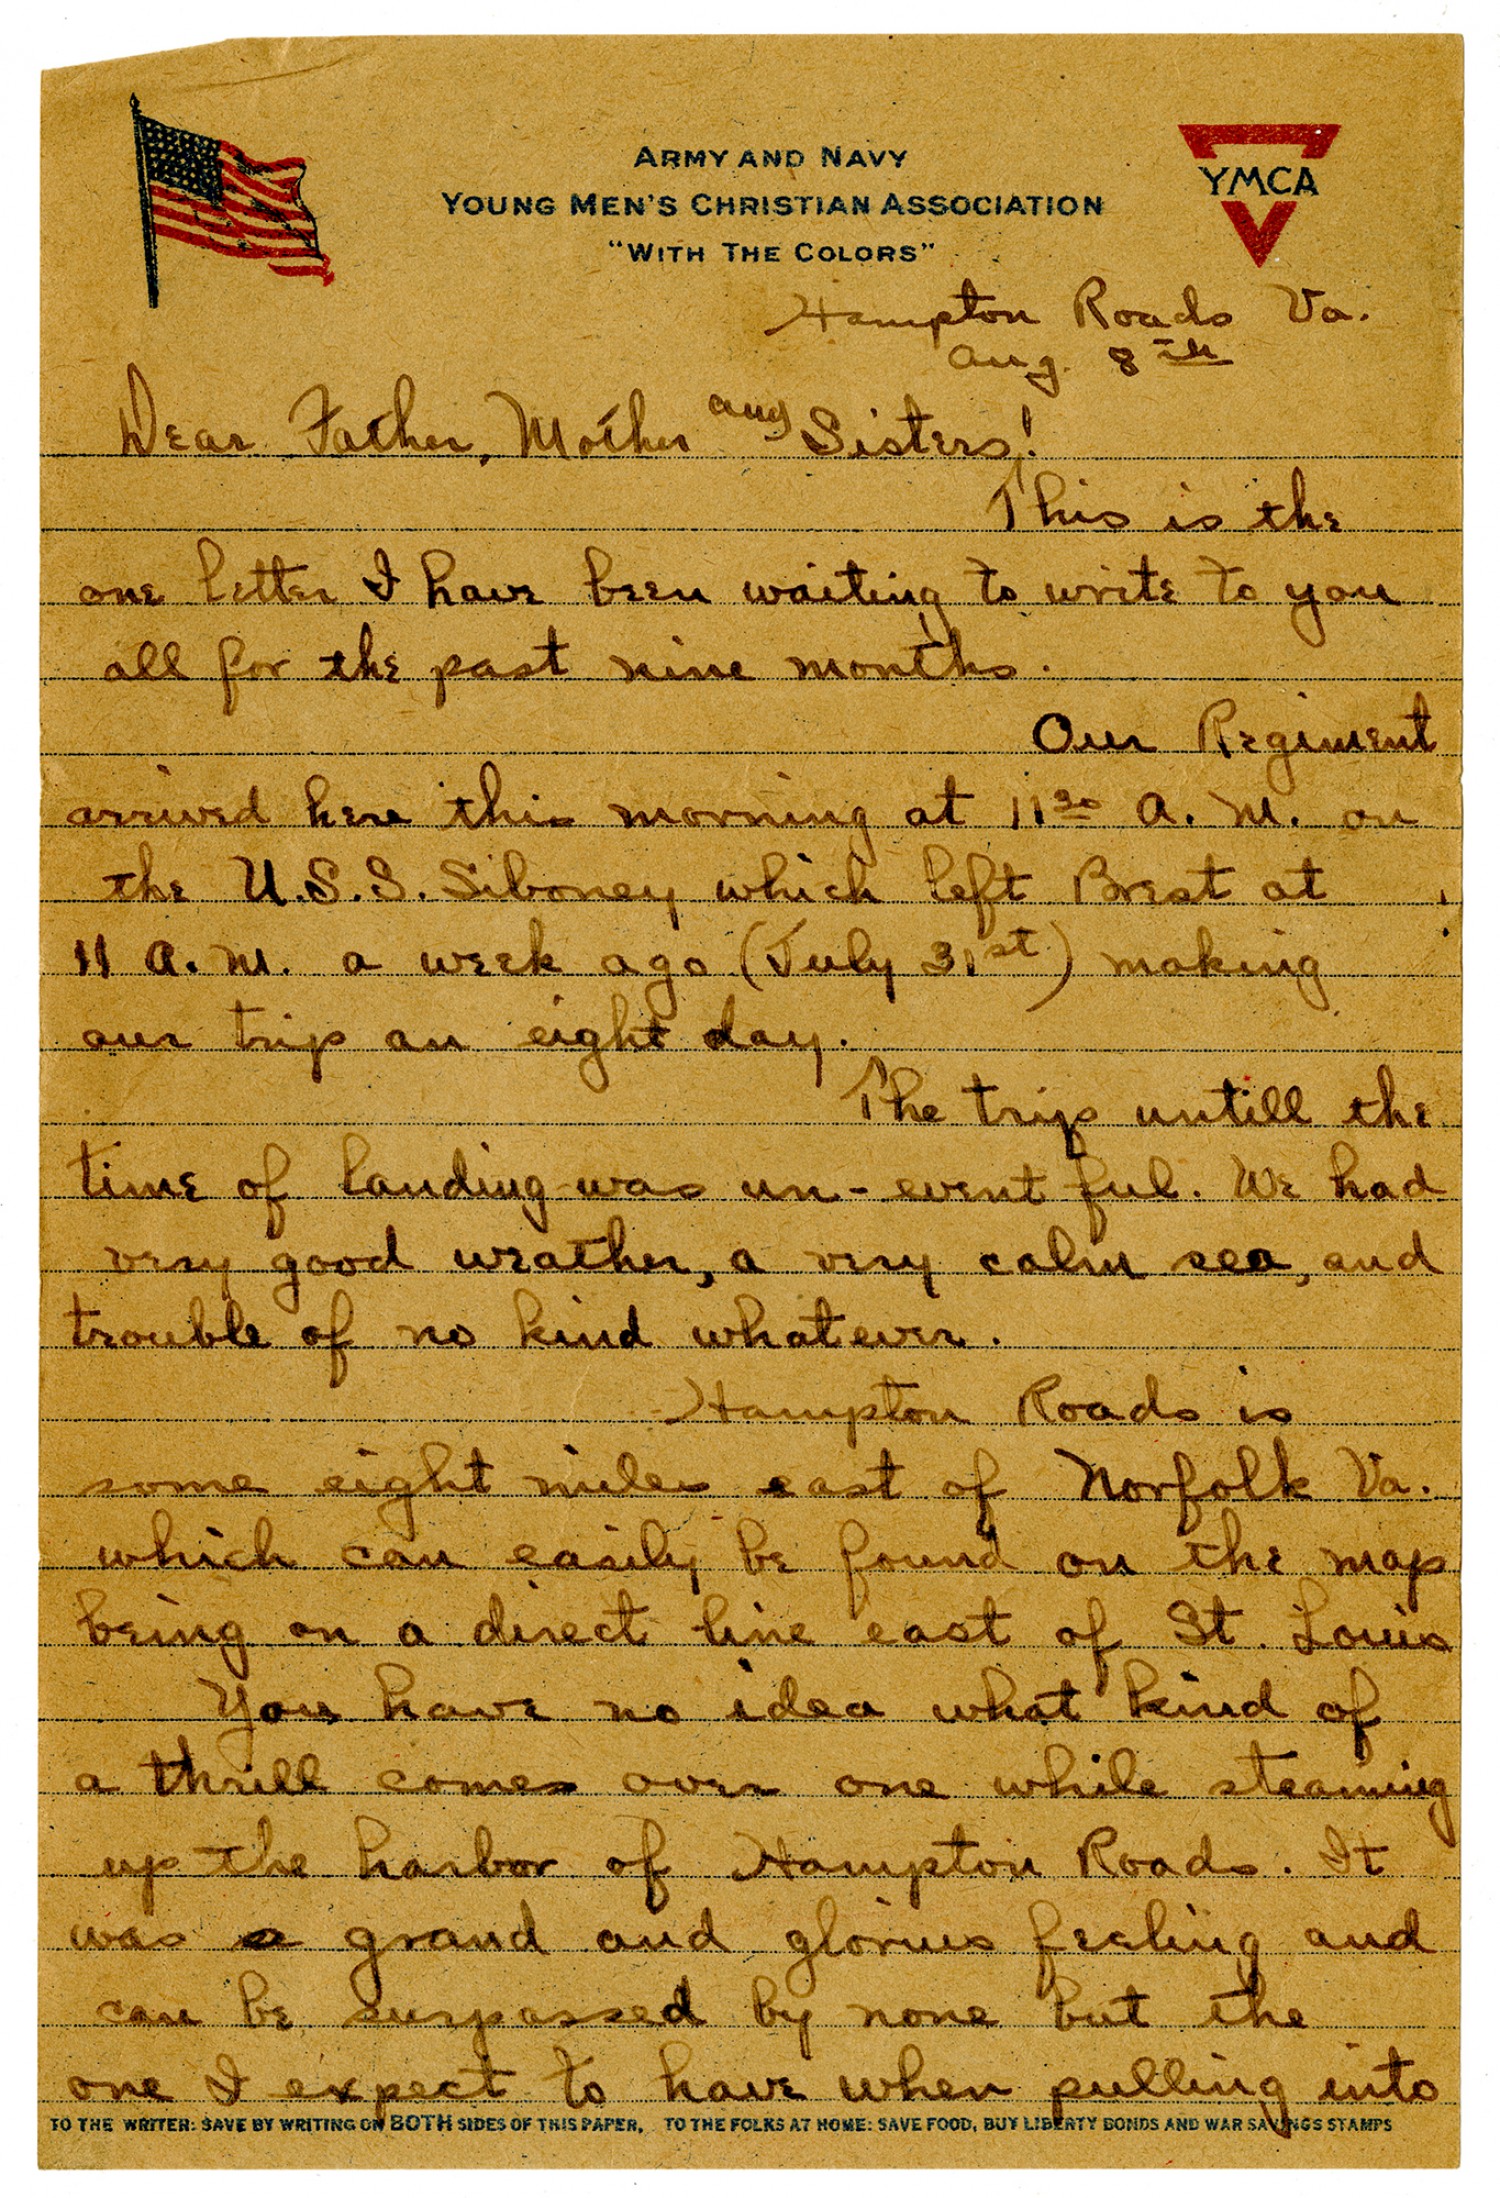 ARMY AND NAVY
YOUNG MEN'S CHRISTIAN ASSOCIATION
"WITH THE COLORS"
YMCA
Hampton Roads Va.
Aug. 8th
Dear Father, Mother and Sisters!
This is the
one letter I have been waiting to write to you
all for the past nine months.
Our Regiment
arrived here this morning at 1130 A. M. on
the U.S.S. Siboney which left Brest at
11 A. M. a week ago (July 31st) making
our trip an eight day.
The trip untill the
time of landing was un-eventful. We had
very good weather, a very calm sea, and
trouble of no kind whatever.
Hampton Roads is
some eight miles east of Norfolk Va.
which can easily be found on the map
being on a direct line east of St. Louis
You have no idea what kind of
a thrill comes over one while steaming
up the harbor of Hampton Roads. It
was a grand and glorius feeling and
can be surpassed by none but the
one I expect to have when pulling into
TO THE WRITER: SAVE BY WRITING ON BOTH SIDES OF THIS PAPER. TO THE FOLKS AT HOME: SAVE FOOD, BUY LIBERTY BONDS AND WAR SAVINGS STAMPS